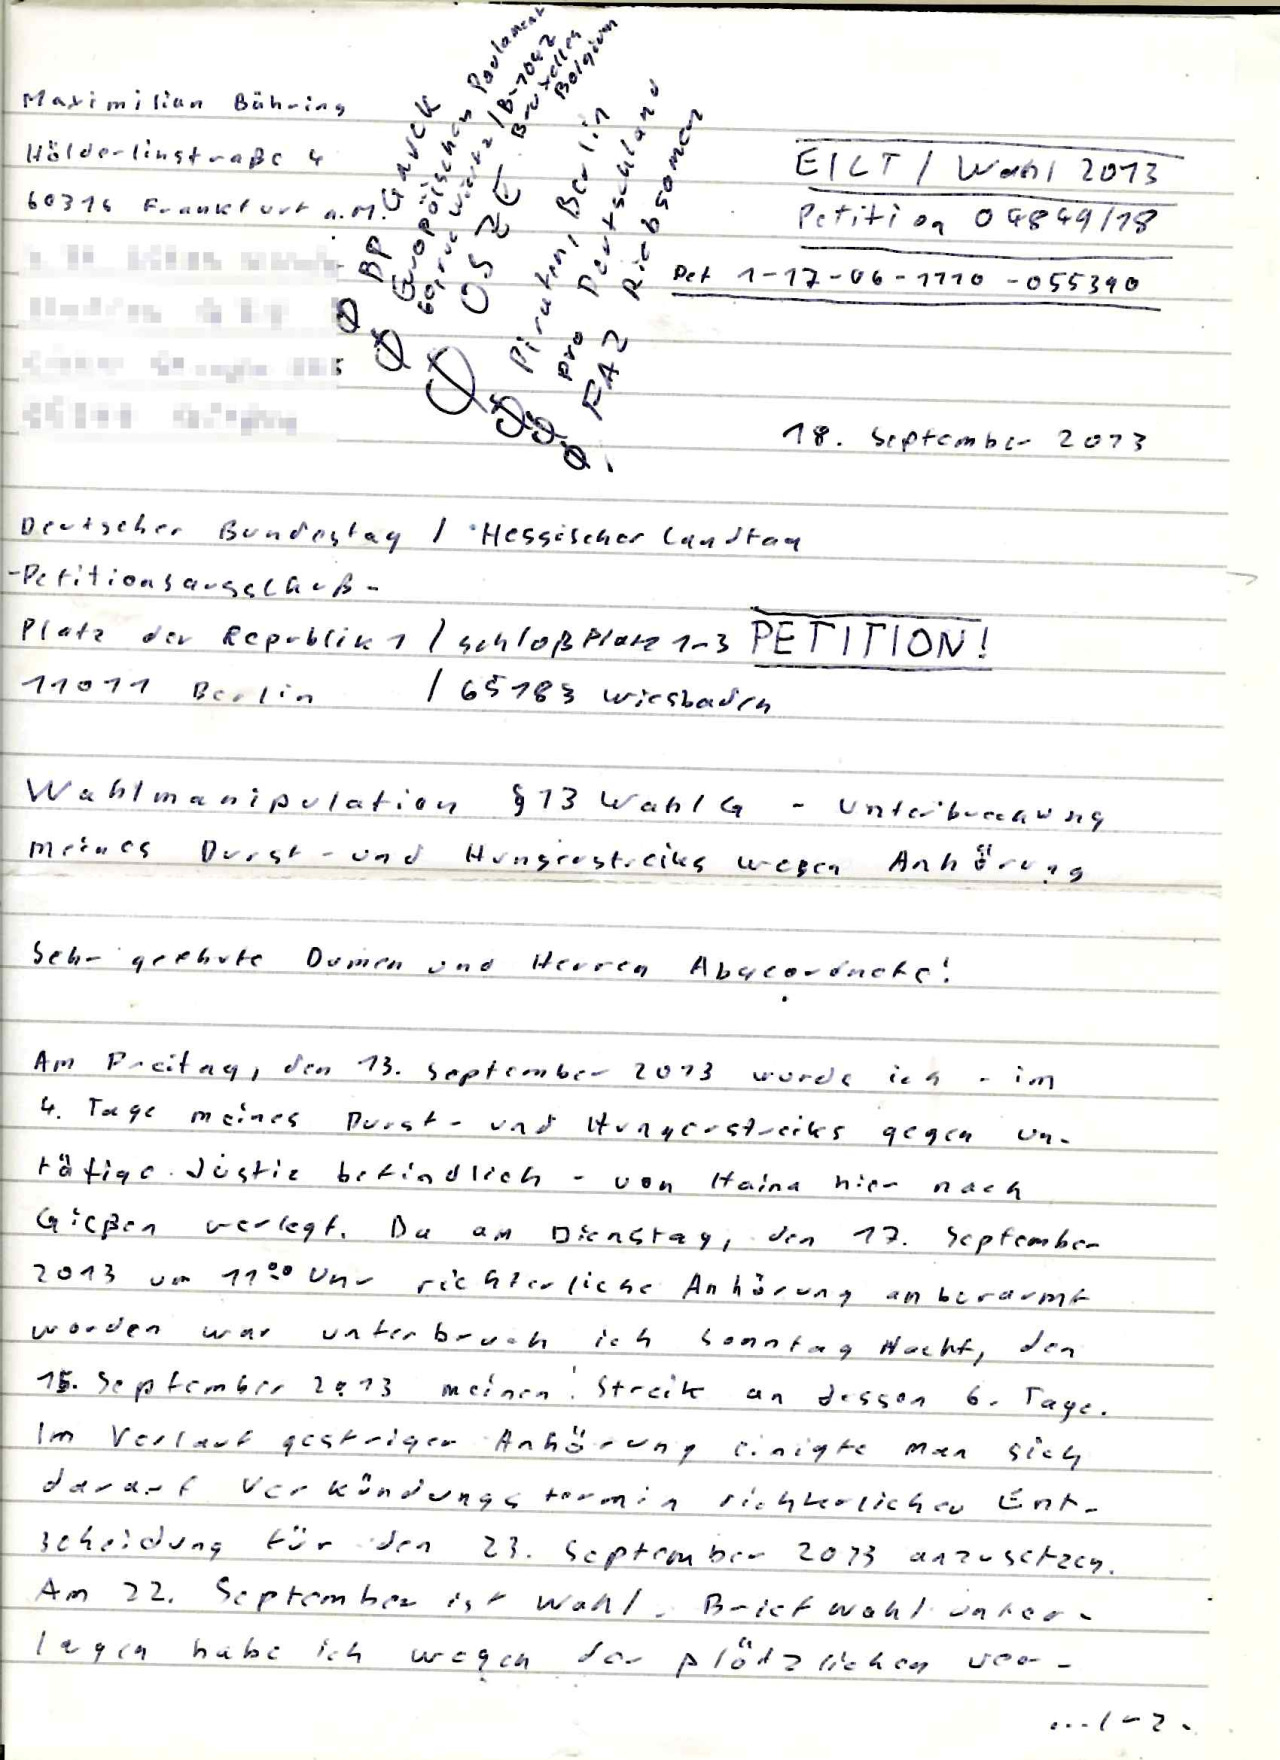 Maximilian Bähring
Hölderlinstraße 4
60316 Frankfurt a.M.
Ø BP Gauck
Ø Europäisches Parlament
60, rue Wiertz / B-1047
Bruxelles
Belgium
Ø OSZE
Ø Piraten, Berlin
Ø pro Deutschland
Ø FAZ Riebsamen
EILT / Wahl 2013
Petition 04849/18
Pet 1-17-06-1110-055390
18. September 2013
Deutscher Bundestag / Hessischer Landtag
-Petitionsausschuß-
Platz der Republik 1 / Schloßplatz 1-3 PETITION!
11011 Berlin / 65183 Wiesbaden
Wahlmanipulation §13 WahlG - Unterbrechung
meines Durst- und Hungerstreiks wegen Anhörung
Sehr geehrte Damen und Herren Abgeordnete!
Am Freitag, den 13. September 2013 wurde ich - im
4. Tage meines Durst- und Hungerstreiks gegen un-
tätige Justiz befindlich - von Haina hier nach
Gießen verlegt. Da am Dienstag, den 17. September
2013 um 11⁰⁰ Uhr richterliche Anhörung anberaumt
worden war unterbrach ich Sonntag Nacht, den
15. September 2013 meinen Streik an dessen 6. Tage.
Im Verlauf gestriger Anhörung einigte man sich
darauf Verkündungstermin richterlicher Ent-
scheidung für den 23. September 2013 anzusetzen.
Am 22. September ist Wahl. Briefwahlunter-
lagen habe ich wegen der plötzlichen ver-
.../-2-